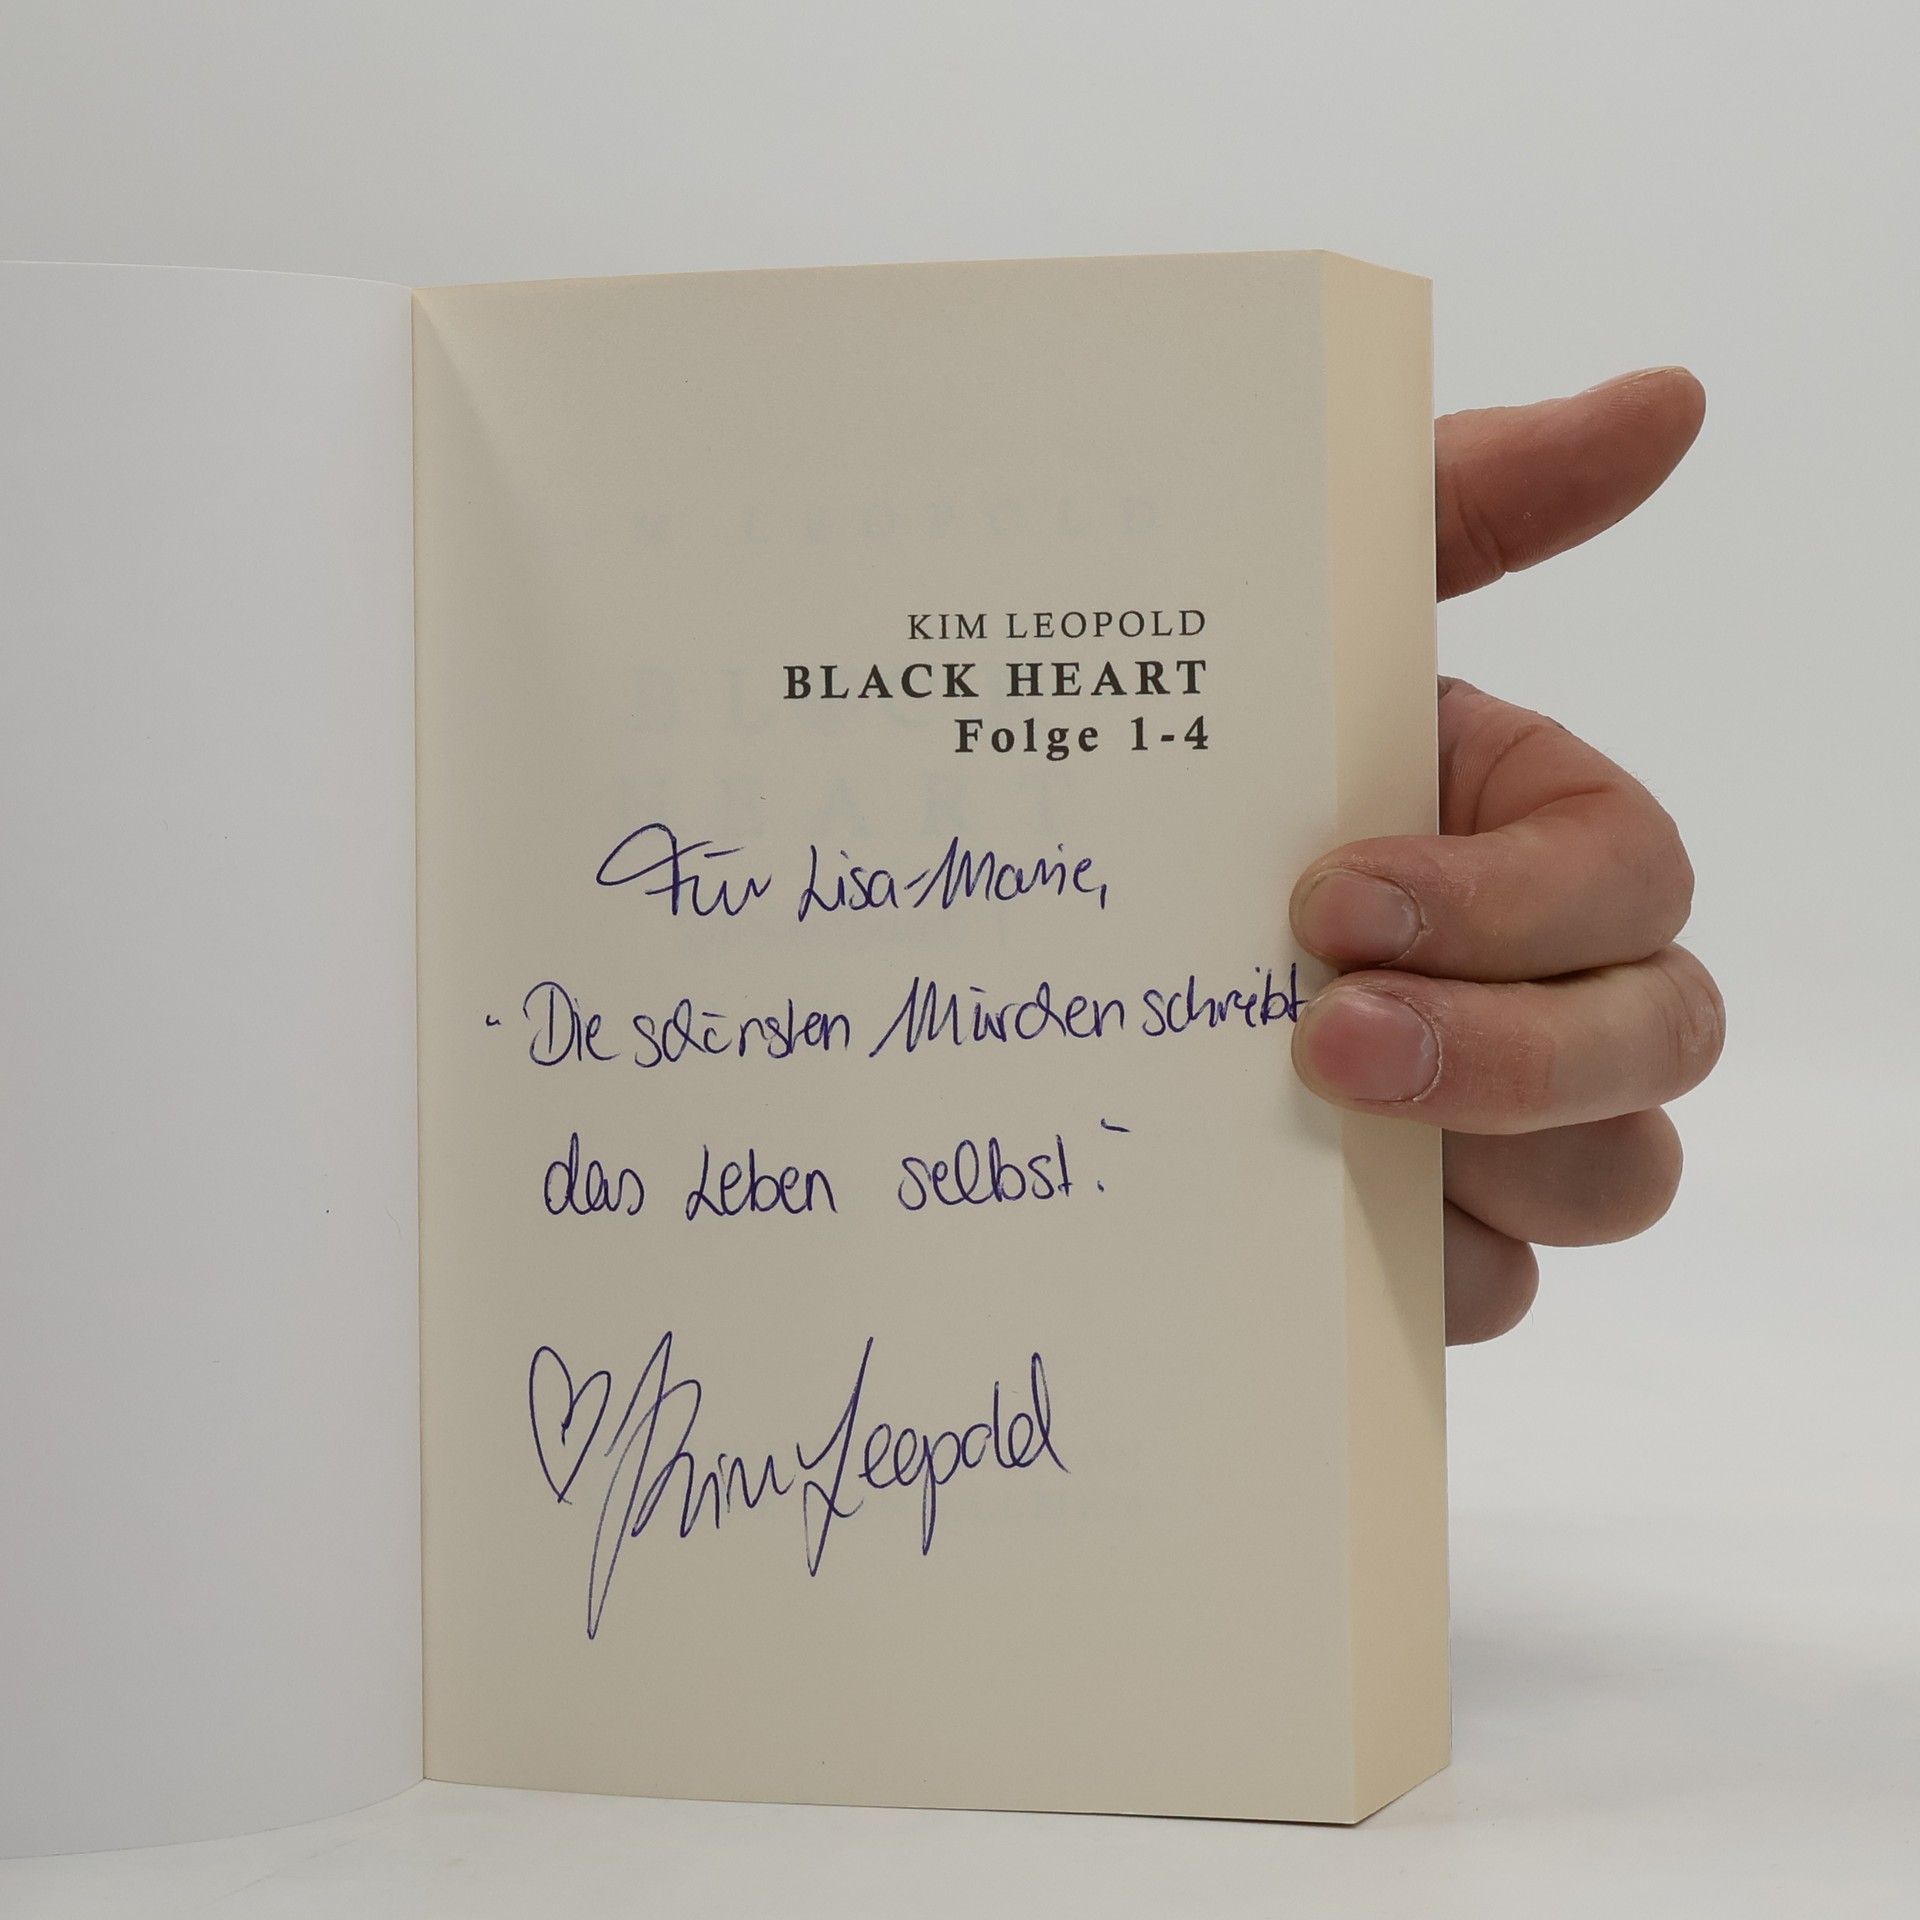 KIM LEOPOLD
BLACK HEART
Folge 1-4
Für Lisa-Marie,
"Die schönsten Märchen schreibt
das Leben selbst."
♡ Kim Leopold